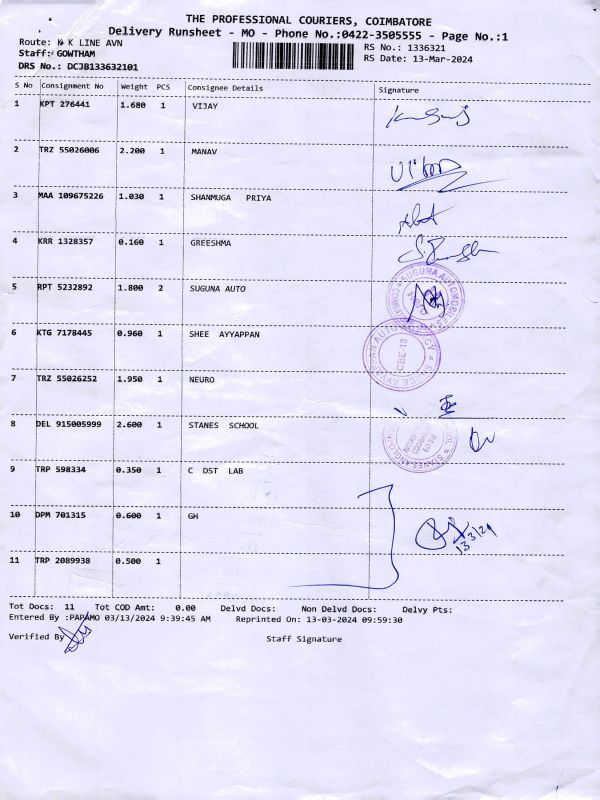 THE PROFESSIONAL COURIERS, COIMBATORE
Delivery Runsheet - MO - Phone No.:0422-3505555 - Page No.:1
Route: K LINE AVN
RS No.: 1336321
Staff: GOWTHAM
RS Date: 13-Mar-2024
DRS No.: DCJB133632101
S No Consignment No Weight PCS Consignee Details Signature
1 KPT 276441 1.680 1 VIJAY
2 TRZ 55026006 2.200 1 MANAV
3 MAA 109675226 1.030 1 SHANMUGA PRIYA
4 KRR 1328357 0.160 1 GREESHMA
5 RPT 5232892 1.800 2 SUGUNA AUTO
SUGUNA AUTOMOBILES
6 KTG 7178445 0.960 1 SHEE AYYAPPAN
AYYAPPAN AUTO AGENCY
CBE-18
7 TRZ 55026252 1.950 1 NEURO
8 DEL 915005999 2.600 1 STANES SCHOOL
9 TRP 598334 0.350 1 C DST LAB
10 DPM 701315 0.600 1 GH
13 3/24
11 TRP 2089938 0.500 1
Tot Docs: 11 Tot COD Amt: 0.00 Delvd Docs: Non Delvd Docs: Delvy Pts:
Entered By :PAPAMO 03/13/2024 9:39:45 AM Reprinted On: 13-03-2024 09:59:30
Verified By
Staff Signature